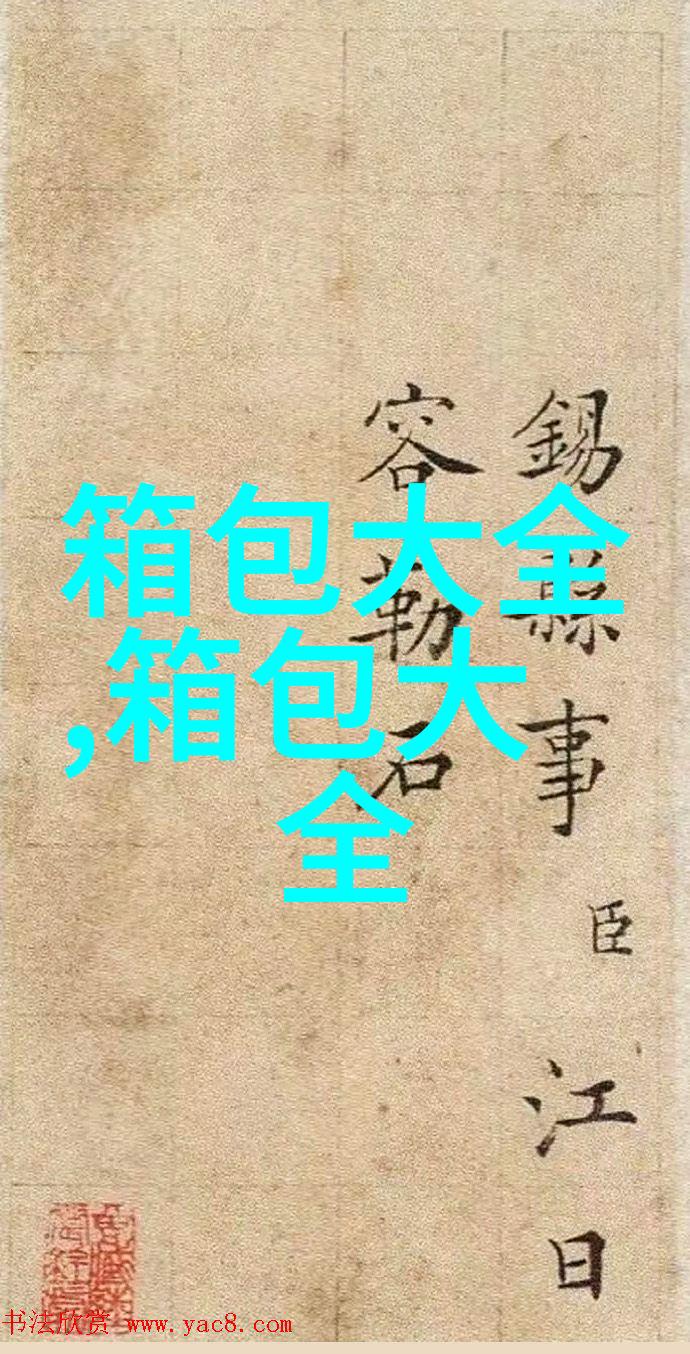 箱包大全
,箱包大
全
錫縣事臣江日
容勒石
书法欣赏 www.yac8.com